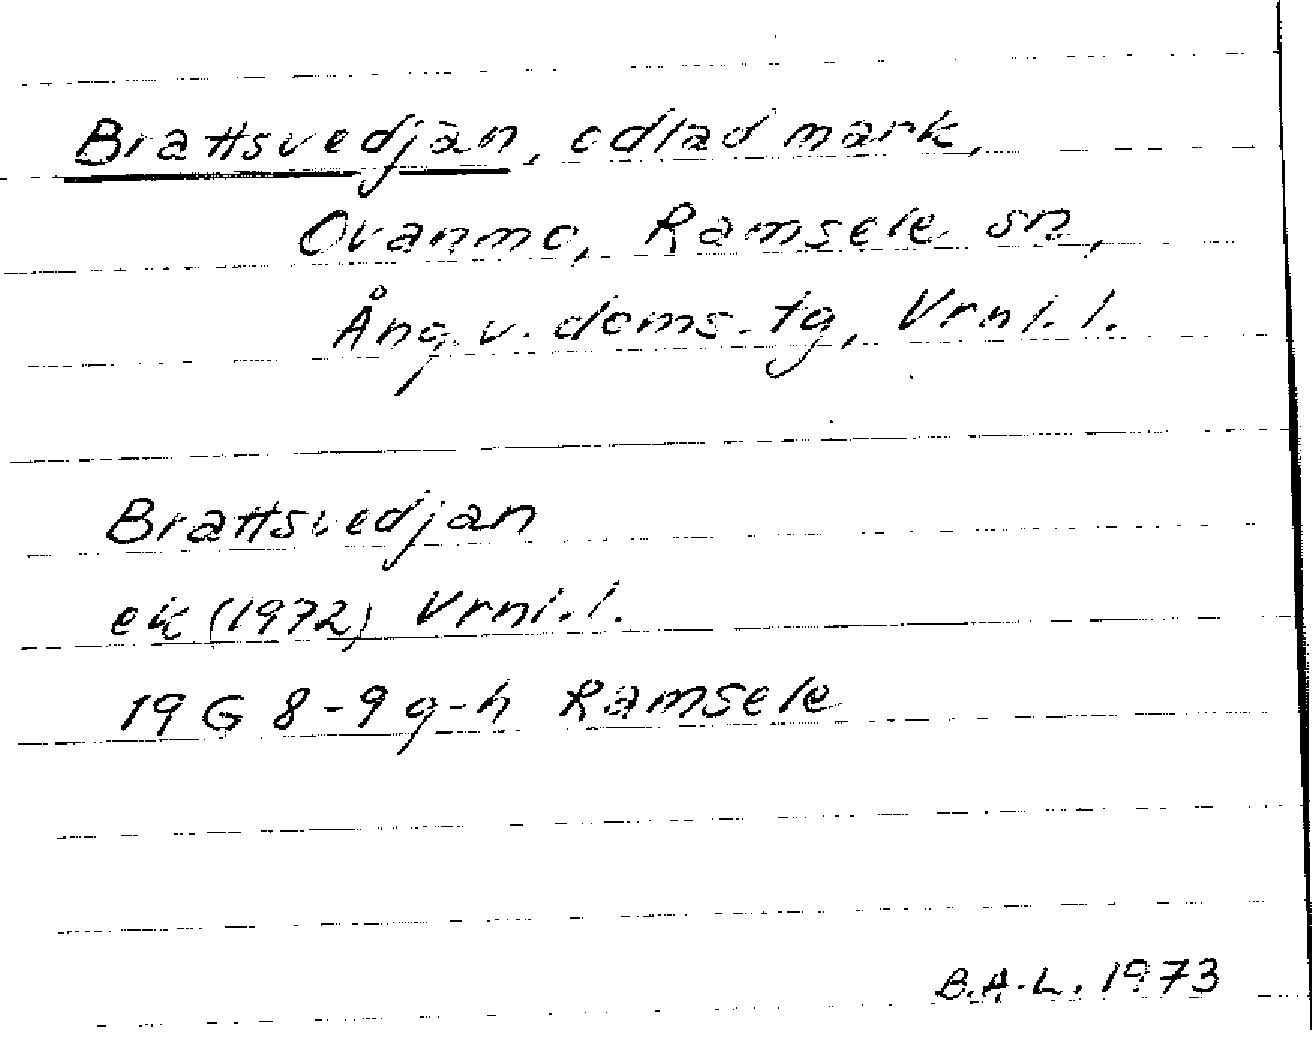 Brattsvedjan, odlad mark,
Ovanmo, Ramsele sn,
Ång. v. doms. tg, Vrnl. l.
Brattsvedjan
ek (1972) Vrnl. l.
19 G 8-9 g-h Ramsele
B.A.L. 1973